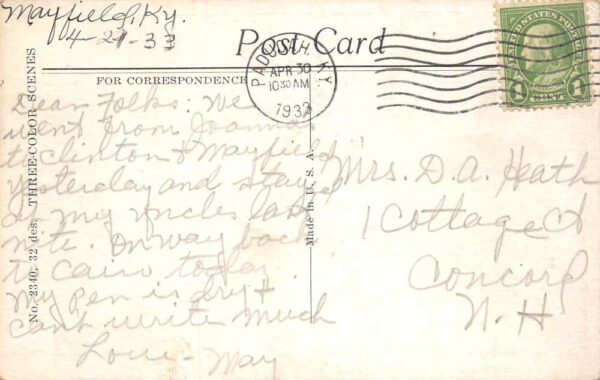 Mayfield, Ky.
4-29-33
Post Card
FOR CORRESPONDENCE
PADUCAH, KY.
APR 30
10 30 AM
193
UNITED STATES POSTAGE
1 CENT 1
No. 2340. 32 des. THREE-COLOR SCENES
Made in U. S. A.
Dear Folks: We
went from
to Clinton & Mayfield
yesterday and stayed
at my uncles last
nite. On way back
to Cairo today.
My pen is dry &
cant write much
Love - May
Mrs. D. A. Heath
1 Cottage Ct
Concord
N. H